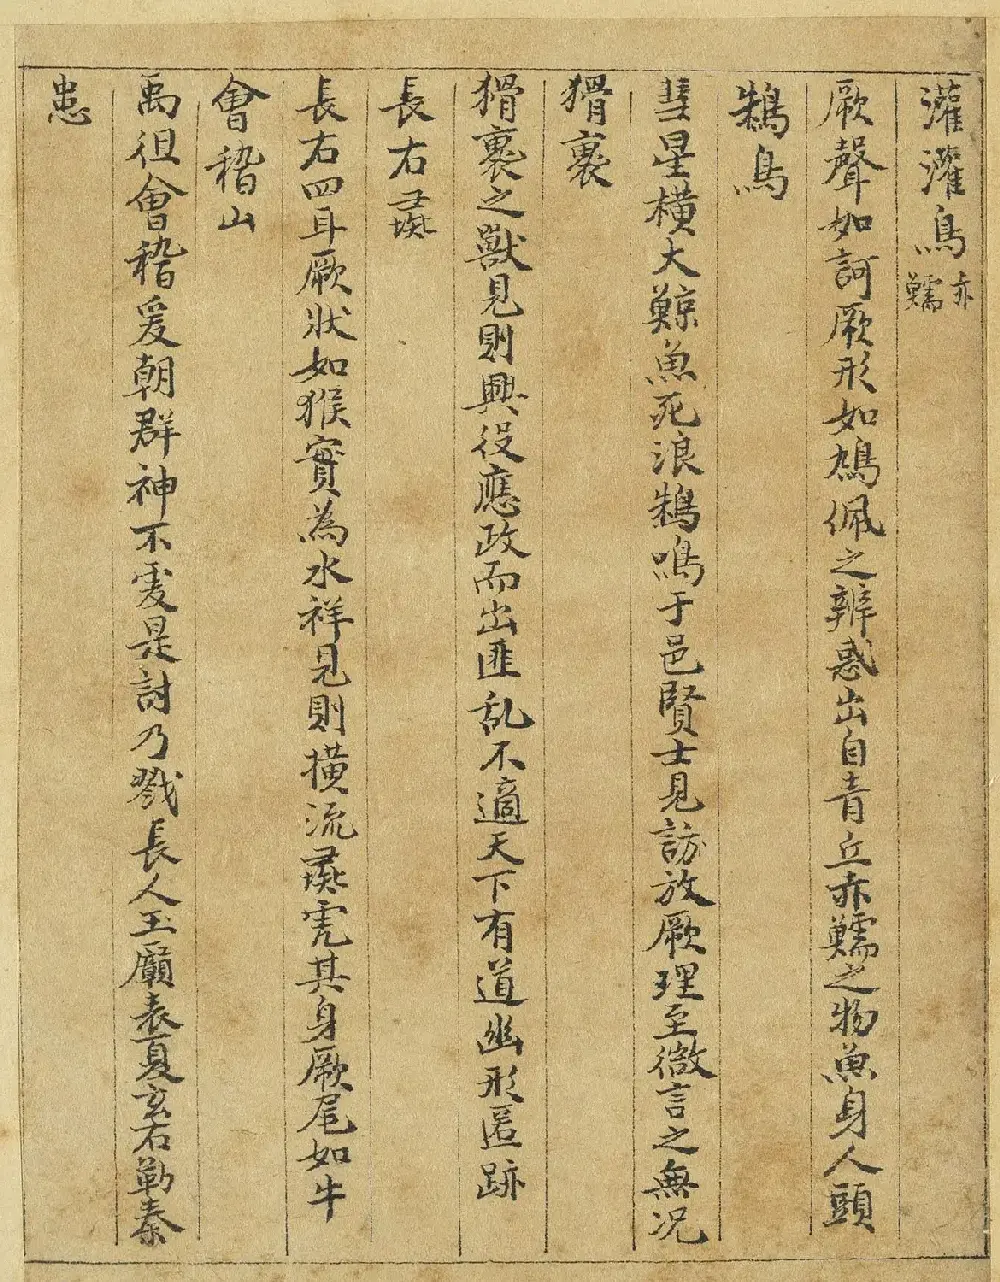 灌灌鳥 亦鱬
厥聲如訶厥形如鳩佩之辨惑出自青丘亦鱬之物魚身人頭
鴸鳥
彗星橫天鯨魚死浪鴸鳴于邑賢士見訪放厥理至微言之無況
猾褱
猾褱之獸見則興役應政而出匪乱不適天下有道幽形匿跡
長右彘
長右四耳厥狀如猴實為水祥見則橫流彘虎其身厥尾如牛
會稽山
禹徂會稽爰朝群神不虔是討乃戮長人玉匱表夏玄石勒秦
患